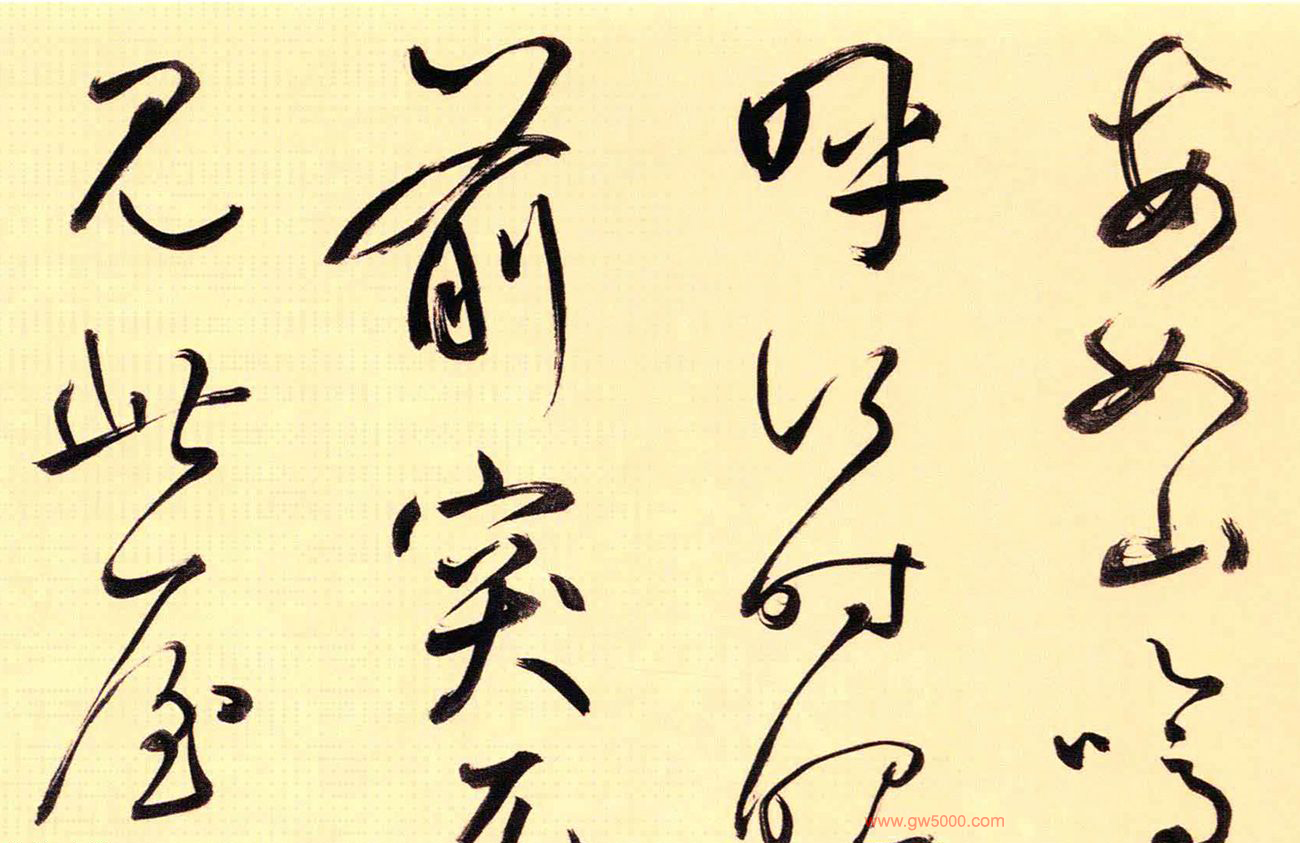 安如山嗚
呼何时眼
前突兀
见此屋
www.gw5000.com